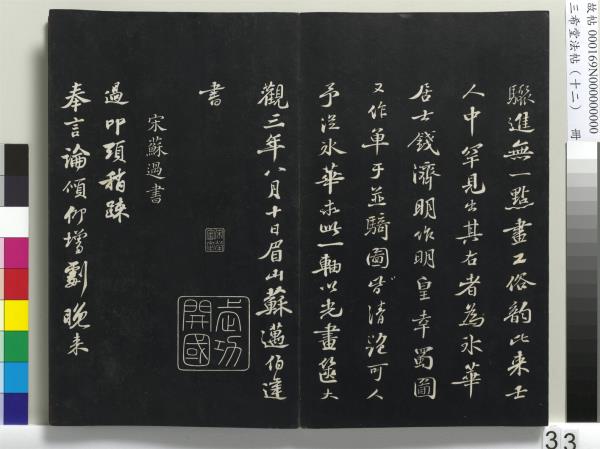 驟進無一點畫工俗韵比来士
人中罕見出其右者為氷華
居士錢濟明作明皇幸蜀圖
又作單于並騎圖皆清潤可人
予從氷華求此一軸以光畫篋大
觀三年八月十日眉山蘇邁伯達
書
宋蘇過書
過叩頭稍踈
奉言論傾仰增劇晚来
武功開國
故帖 000169N000000000
三希堂法帖（十二） 冊
33